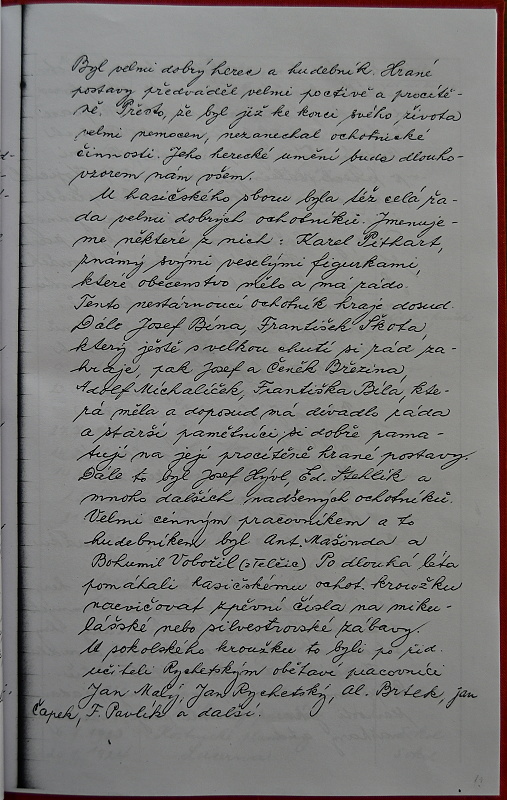 Byl velmi dobrý herec a hudebník. Hrané
postavy předváděl velmi poctivě a procítě-
ně. Přesto, že byl již ke konci svého života
velmi nemocen, nezanechal ochotnické
činnosti. Jeho herecké umění bude dlouho
vzorem nám všem.
U hasičského sboru byla též celá řa-
da velmi dobrých ochotníků. Jmenuje-
me některé z nich: Karel Pithart,
známý svými veselými figurkami,
které obecenstvo mělo a má rádo.
Tento nestárnoucí ochotník hraje dosud.
Dále Josef Bína, František Škota,
který ještě s velkou chutí si rád za-
hraje, pak Josef a Čeněk Březina,
Adolf Michalíček, Františka Bílá, kte-
rá měla a doposud má divadlo ráda
a starší pamětníci si dobře pama-
tují na její procítěně hrané postavy.
Dále to byl Josef Hývl, Ed. Stehlík a
mnoho dalších nadšených ochotníků.
Velmi cenným pracovníkem a to
hudebníkem byl Ant. Mašinda a
Bohumil Vobořil (z Telče) Po dlouká léta
pomáhali hasičskému ochot. kroužku
nacvičovat zpěvní čísla na miku-
lášské nebo silvestrovské zábavy.
U sokolského kroužku to byli po říd.
učiteli Rychetským obětaví pracovníci
Jan Malý, Jan Rychetský, Al. Brtek, Jan
Čapek, F. Pavlík a další.